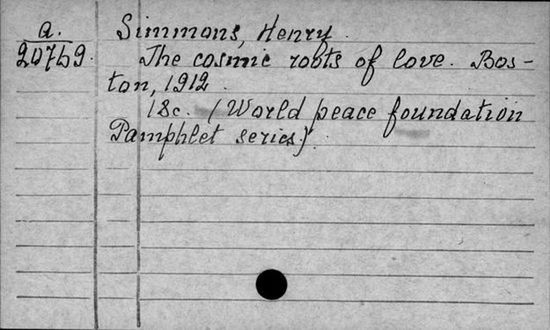 a.
20769.
Simmons, Henry.
The cosmic roots of love. Bos-
ton, 1912.
18c. (World peace foundation
Pamphlet series).